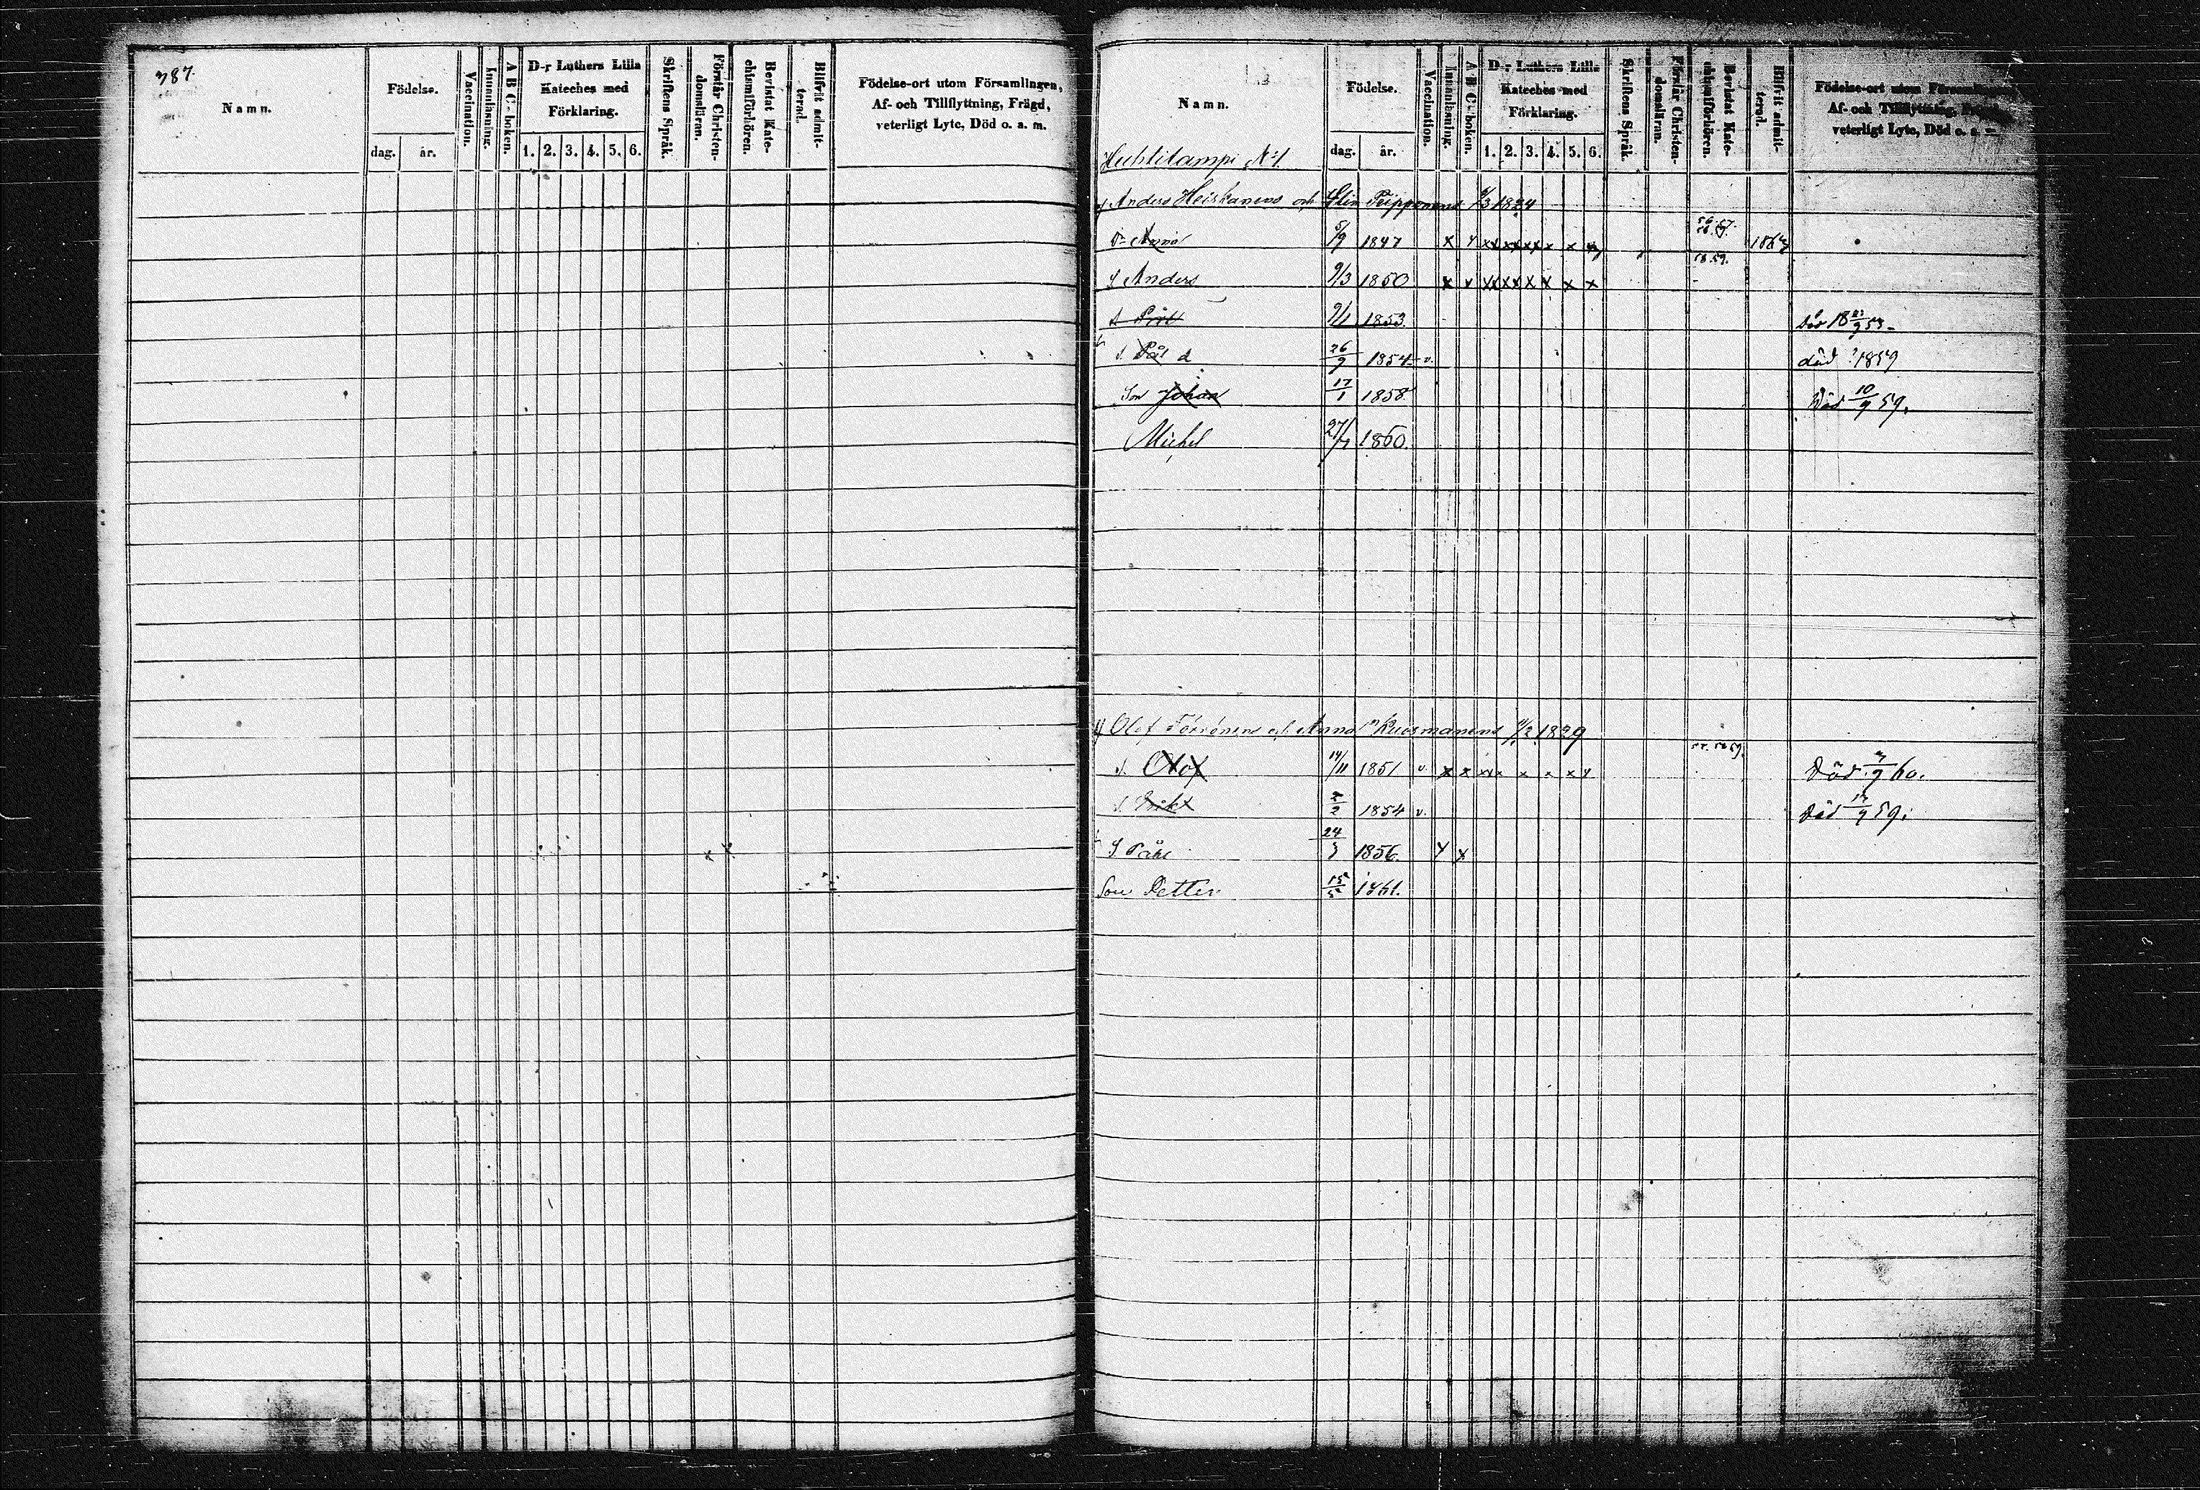 787.
Namn. Födelse. Vaccination. Innanläsning. A B C-boken. D-r Luthers Lilla Kateches med Förklaring. Skriftens Språk. Förstår Christendomsläran. Bevistat Katechismiförhören. Blifvit admitterad. Födelse-ort utom Församlingen, Af- och Tillflyttning, Frägd, veterligt Lyte, Död o. a. m.
dag. år. 1. 2. 3. 4. 5. 6.
Namn. Födelse. Vaccination. Innanläsning. A B C-boken. D-r Luthers Lilla Kateches med Förklaring. Skriftens Språk. Förstår Christendomsläran. Bevistat Katechismiförhören. Blifvit admitterad. Födelse-ort utom Församlingen, Af- och Tillflyttning, Frägd, veterligt Lyte, Död o. a. m.
dag. år. 1. 2. 3. 4. 5. 6.
Huhtilampi N:1
Anders Heiskanens och Stin Peipponens 1824
Anna 5/9 1847 x x x x x x x x
S Anders 9/3 1850 x x x x x x x x 58.59.
9/1 1853. död 18 53.
S. Pål d 26/9 1854 v. död 1859
Son Johan 17/1 1858 Död 10/9 59.
Michel 27/7 1860.
Olof Törrönens och Anna Kuosmanens 1829
S. Olof 14/11 1851 v. x x x x x x x x Död /9 60.
S. Erik 2/2 1854 v. Död /9 59.
S Påhl 24/3 1856. x x
Son Petter 15/5 1861.